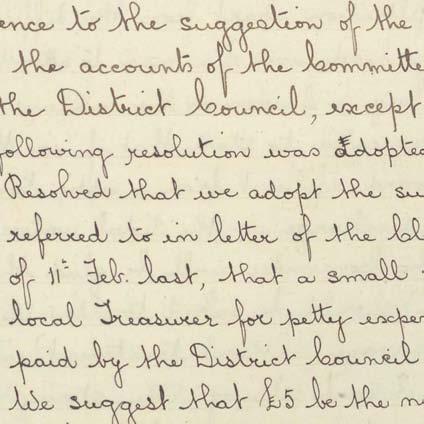 ence to the suggestion of the
the accounts of the Committe
the District Council, except
following resolution was adopted
Resolved that we adopt the su
referred to in letter of the Cl
of 11th Feb. last, that a small
local Treasurer for petty expe
paid by the District Council
We suggest that £5 be the